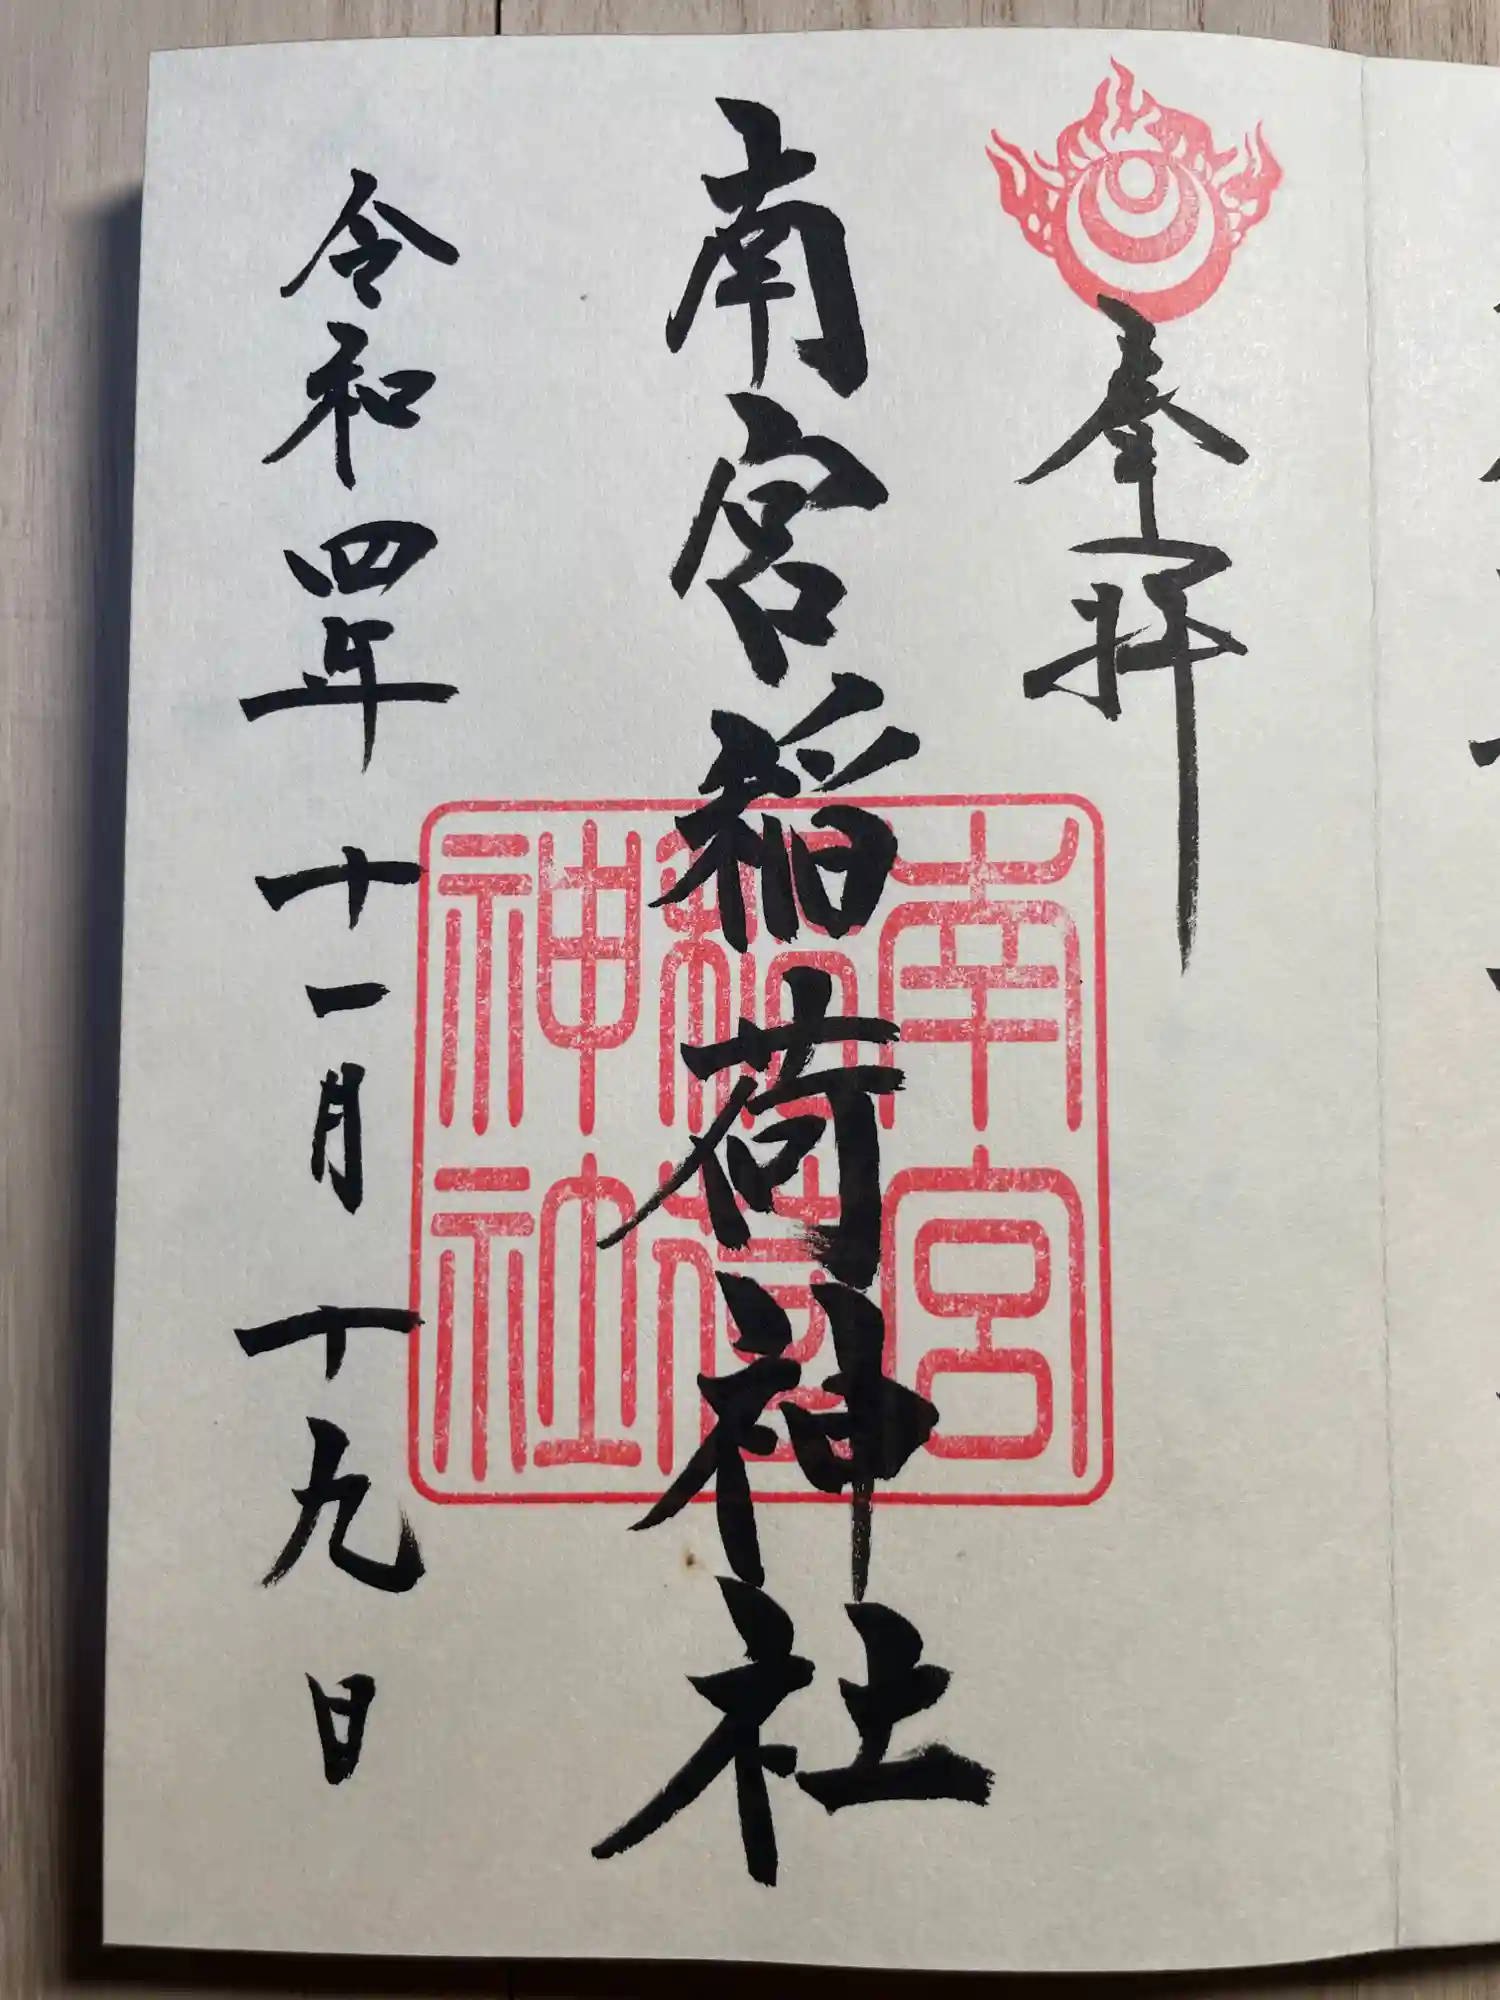 奉拝
南宮稲荷神社
令和四年十一月十九日
南宮
稲荷
神社